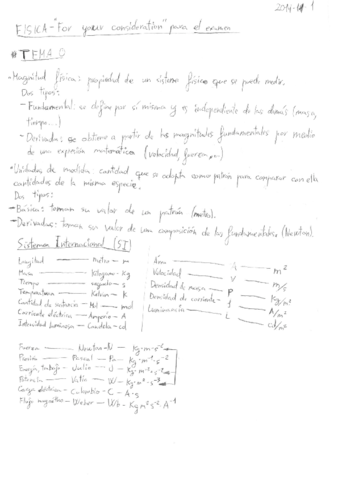 2014-11 1
FÍSICA - "For your consideration" para el examen
* TEMA 0
- Magnitud física: propiedad de un sistema físico que se puede medir.
Dos tipos:
- Fundamental: se define por sí misma y es independiente de las demás (masa,
tiempo...)
- Derivada: se obtiene a partir de las magnitudes fundamentales por medio
de una expresión matemática (velocidad, fuerza...)
- Unidades de medida: cantidad que se adopta como patrón para comparar con ella
cantidades de la misma especie.
Dos tipos:
- Básica: toman su valor de un patrón (metro).
- Derivadas: toman su valor de una composición de las fundamentales (Newton).
Sistema Internacional (SI)
Longitud — Metro - m
Masa — Kilogramo - Kg
Tiempo — segundo - s
Temperatura — Kelvin - K
Cantidad de sustancia - Mol - mol
Corriente eléctrica - Amperio - A
Intensidad luminosa - Candela - cd
Área — A — m²
Velocidad — V — m/s
Densidad de masa - ρ — Kg/m³
Densidad de corriente - J — A/m²
Luminancia — L — cd/m²
Fuerza — Newton - N - Kg·m·s⁻²
Presión — Pascal - Pa - Kg·m⁻¹·s⁻²
Energía, trabajo - Julio - J - Kg·m²·s⁻²
Potencia — Vatio - W - Kg·m²·s⁻³
Carga eléctrica - Culombio - C - A·s
Flujo magnético - Weber - Wb - Kg m² s⁻² A⁻¹